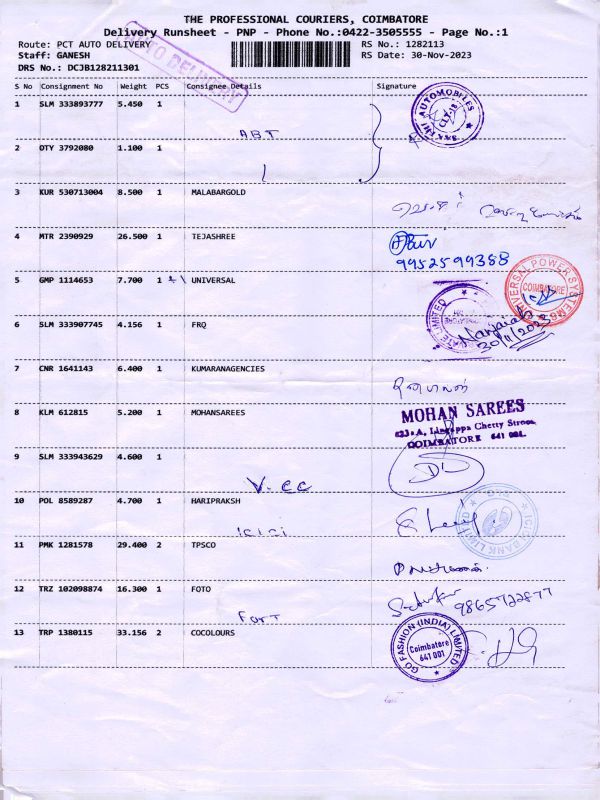 THE PROFESSIONAL COURIERS, COIMBATORE
Delivery Runsheet - PNP - Phone No.:0422-3505555 - Page No.:1
Route: PCT AUTO DELIVERY RS No.: 1282113
Staff: GANESH RS Date: 30-Nov-2023
DRS No.: DCJB128211301
AUTO DELIVERY
S No Consignment No Weight PCS Consignee Details Signature
1 SLM 333893777 5.450 1
AUTOMOBILES
A.B.T
2 DTY 3792080 1.100 1
3 KUR 530713004 8.500 1 MALABARGOLD
4 MTR 2390929 26.500 1 TEJASHREE
9952599388
5 GMP 1114653 7.700 1 UNIVERSAL
UNIVERSAL POWER SYSTEMS
COIMBATORE
6 SLM 333907745 4.156 1 FRQ
30/11/2023
7 CNR 1641143 6.400 1 KUMARANAGENCIES
8 KLM 612815 5.200 1 MOHANSAREES
MOHAN SAREES
623-A, Lingappa Chetty Street,
COIMBATORE 641 001.
9 SLM 333943629 4.600 1
V.CC
10 POL 8589287 4.700 1 HARIPRAKSH
ICICI
ICICI BANK LIMITED
11 PMK 1281578 29.400 2 TPSCO
12 TRZ 102098874 16.300 1 FOTO
9865722877
Fort
13 TRP 1380115 33.156 2 COCOLOURS
GO FASHION (INDIA) LIMITED
Coimbatore
641 001